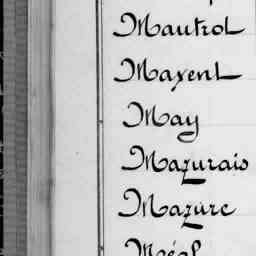 Mautrol
Maxent
May
Mazurais
Mazure
Méal